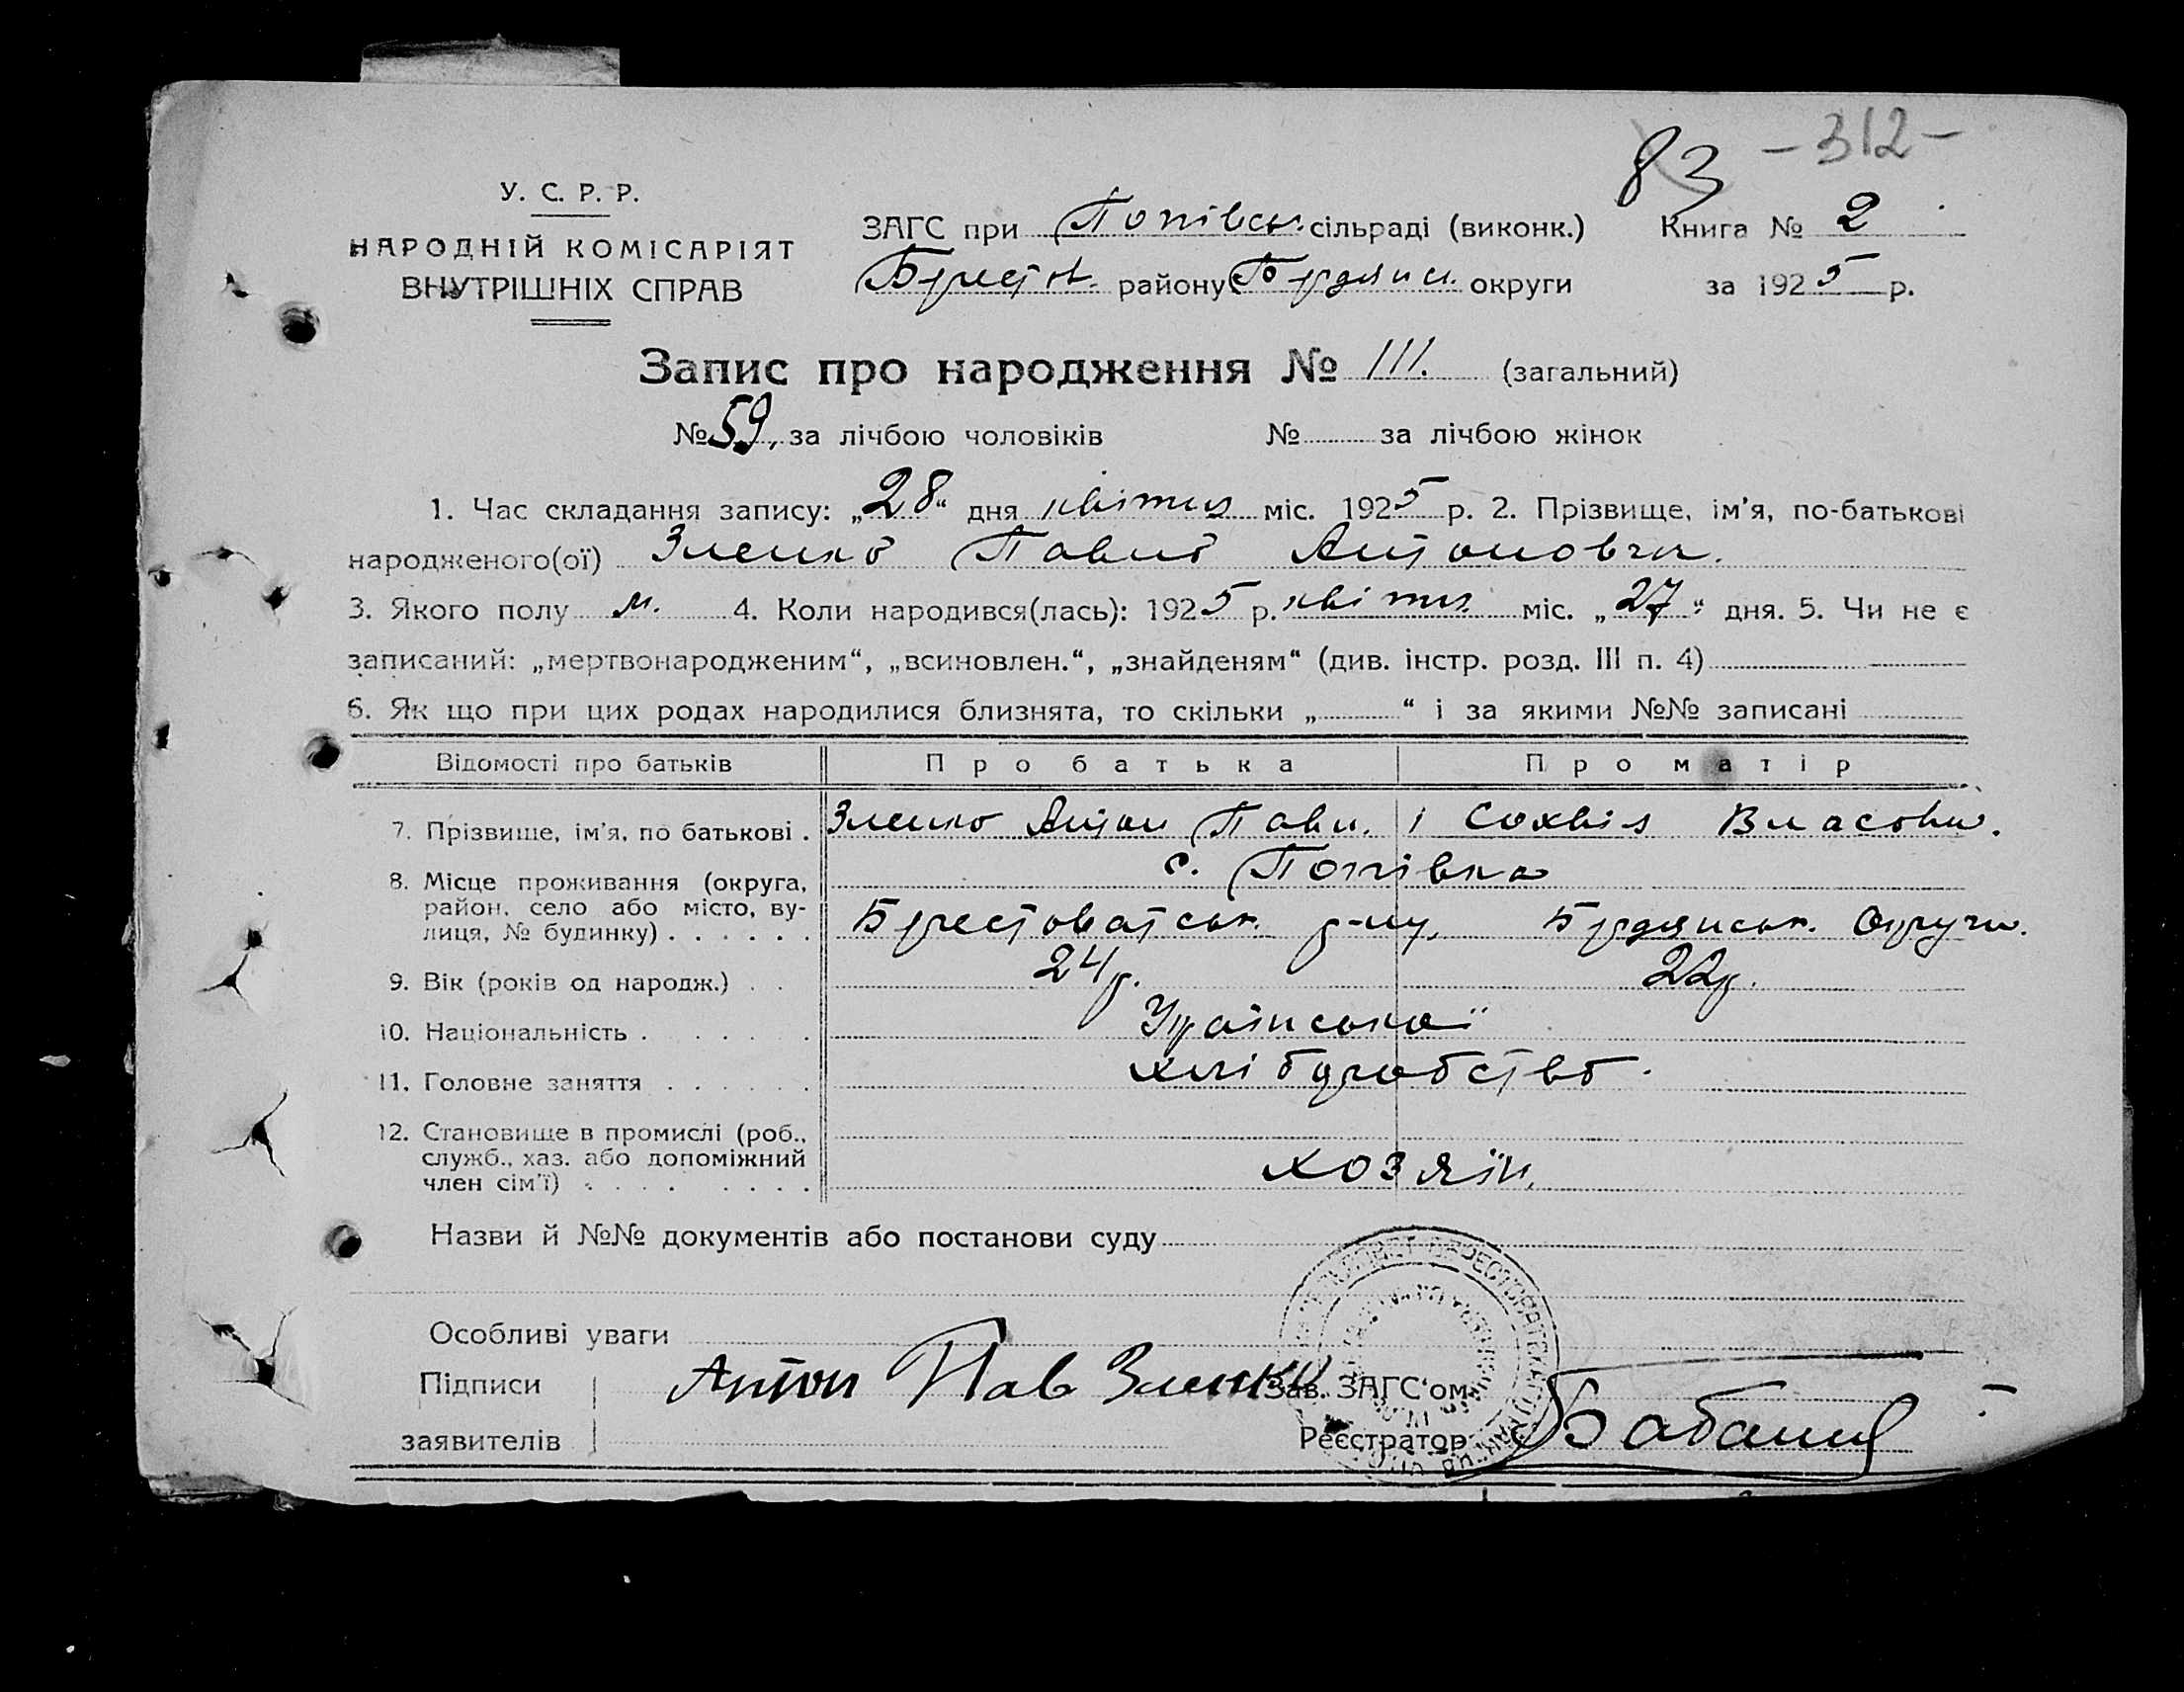 83 - 312 -
У. С. Р. Р.
НАРОДНІЙ КОМІСАРІЯТ
ВНУТРІШНІХ СПРАВ
ЗАГС при Попівськ. сільраді (виконк.) Книга № 2
Брест. району Бердянськ. округи за 1925 р.
Запис про народження № 111. (загальний)
№ 59. за лічбою чоловіків № за лічбою жінок
1. Час складання запису: „28“ дня квітня міс. 1925 р. 2. Прізвище, ім'я, по-батькові
народженого(ої) Зленко Павло Антонович.
3. Якого полу м. 4. Коли народився(лась): 1925 р. квітня міс. „27“ дня. 5. Чи не є
записаний: „мертвонародженим“, „всиновлен.“, „знайденям“ (див. інстр. розд. III п. 4)
6. Як що при цих родах народилися близнята, то скільки „ “ і за якими №№ записані
Відомості про батьків Про батька Про матір
7. Прізвище, ім'я, по батькові . Зленко Антон Павл. і Сохвія Власовн.
8. Місце проживання (округа, с. Попівка
район, село або місто, ву-
лиця, № будинку) . . . . . . Берестоватськ. р-ну, Бердянськ. Округи.
9. Вік (років од народж.) . . 24 р. 22 р.
10. Національність . . . . . Українська
11. Головне заняття . . . . . . хліборобство.
12. Становище в промислі (роб.,
служб., хаз. або допоміжний
член сім'ї) . . . . . . . . хозяїн.
Назви й №№ документів або постанови суду
Особливі уваги
Підписи Антон Пав Зленко Зав. ЗАГС'ом
заявителів Реєстратор